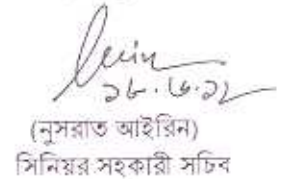 ১৮.৬.১২
(নুসরাত আইরিন)
সিনিয়র সহকারী সচিব